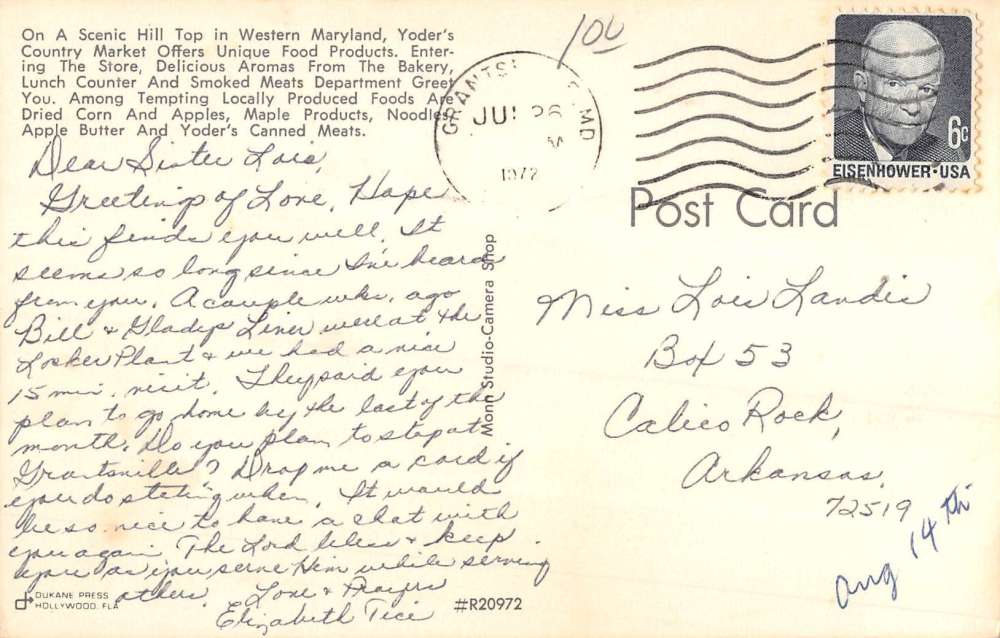 On A Scenic Hill Top in Western Maryland, Yoder's
Country Market Offers Unique Food Products. Enter-
ing The Store, Delicious Aromas From The Bakery,
Lunch Counter And Smoked Meats Department Greet
You. Among Tempting Locally Produced Foods Are
Dried Corn And Apples, Maple Products, Noodles,
Apple Butter And Yoder's Canned Meats.
Dear Sister Lois,
Greetings of Love, Hope
this finds you well. It
seems so long since I've heard
from you. A couple wks. ago
Bill & Gladys Liner were at the
Locker Plant & we had a nice
15 min. visit. They said you
plan to go home by the last of the
month. Do you plan to stop at
Grantsville? Drop me a card if
you do stating when. It would
be so nice to have a chat with
you again. The Lord bless & keep
you as you serve Him while serving
others. Love & Prayers
Elizabeth Tice
DUKANE PRESS
HOLLYWOOD. FLA
#R20972
Monn Studio-Camera Shop
100
MD
1972
6c
EISENHOWER·USA
Post Card
Miss Lois Landis
Box 53
Calico Rock,
Arkansas,
72519
Aug 14th